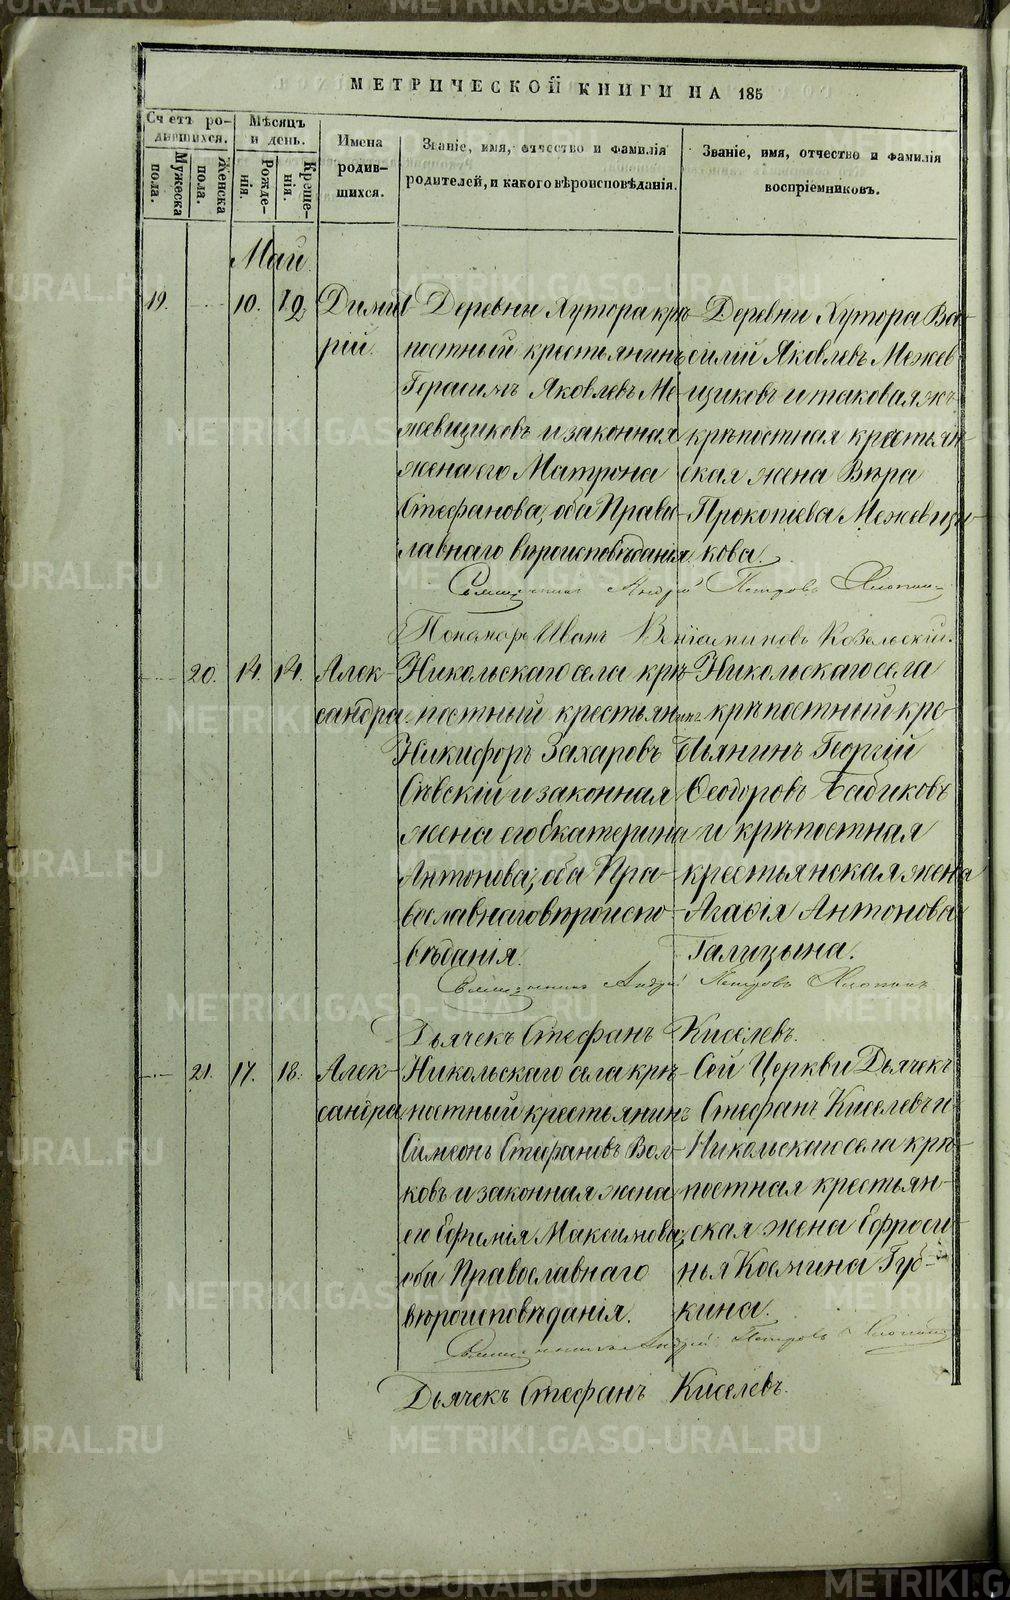 МЕТРИЧЕСКОЙ КНИГИ НА 185
Счетъ родившихся.
Мужеска пола.
Женска пола.
Мѣсяцъ и день.
Рожденія.
Крещенія.
Имена родившихся.
Званіе, имя, отчество и фамилія родителей, и какого вѣроисповѣданія.
Званіе, имя, отчество и фамилія воспріемниковъ.
Май.
19. 10. 12 Димит-
рій.
Деревни Хутора крѣ-
постный крестьянинъ
Герасимъ Яковлевъ Ме-
жевщиковъ и законная
жена его Матрона
Стефанова, оба Право-
славнаго вѣроисповѣданія.
Деревни Хутора Ва-
силій Яковлевъ Межев-
щиковъ и таковая же
крѣпостная крестьян-
ская жена Вѣра
Прокопіева Межевщи-
кова.
Священникъ Андрей Петровъ
Пономарь Иванъ Веніаминовъ Козельскій.
20. 14. 14. Алек-
сандра.
Никольскаго села крѣ-
постный крестьянинъ
Никифоръ Захаровъ
Сѣвскій и законная
жена его Екатерина
Антонова; оба Пра-
вославнаго вѣроиспо-
вѣданія.
Никольскаго села
крѣпостный кре-
стьянинъ Георгій
Ѳеодоровъ Бабиковъ
и крѣпостная
крестьянская жена
Агафія Антонова
Галицына.
Священникъ Андрей Петровъ
Дьячекъ Стефанъ Киселевъ.
21. 17. 18. Алек-
сандра
Никольскаго села крѣ-
постный крестьянинъ
Симеонъ Стефановъ Вол-
ковъ и законная жена
его Евфимія Максимова;
оба Православнаго
вѣроисповѣданія.
Сей Церкви Дьячекъ
Стефанъ Киселевъ и
Никольскаго села крѣ-
постная крестьян-
ская жена Ефроси-
нья Космина Губ-
кина.
Священникъ Андрей Петровъ
Дьячекъ Стефанъ Киселевъ.
METRIKI.GASO-URAL.RU